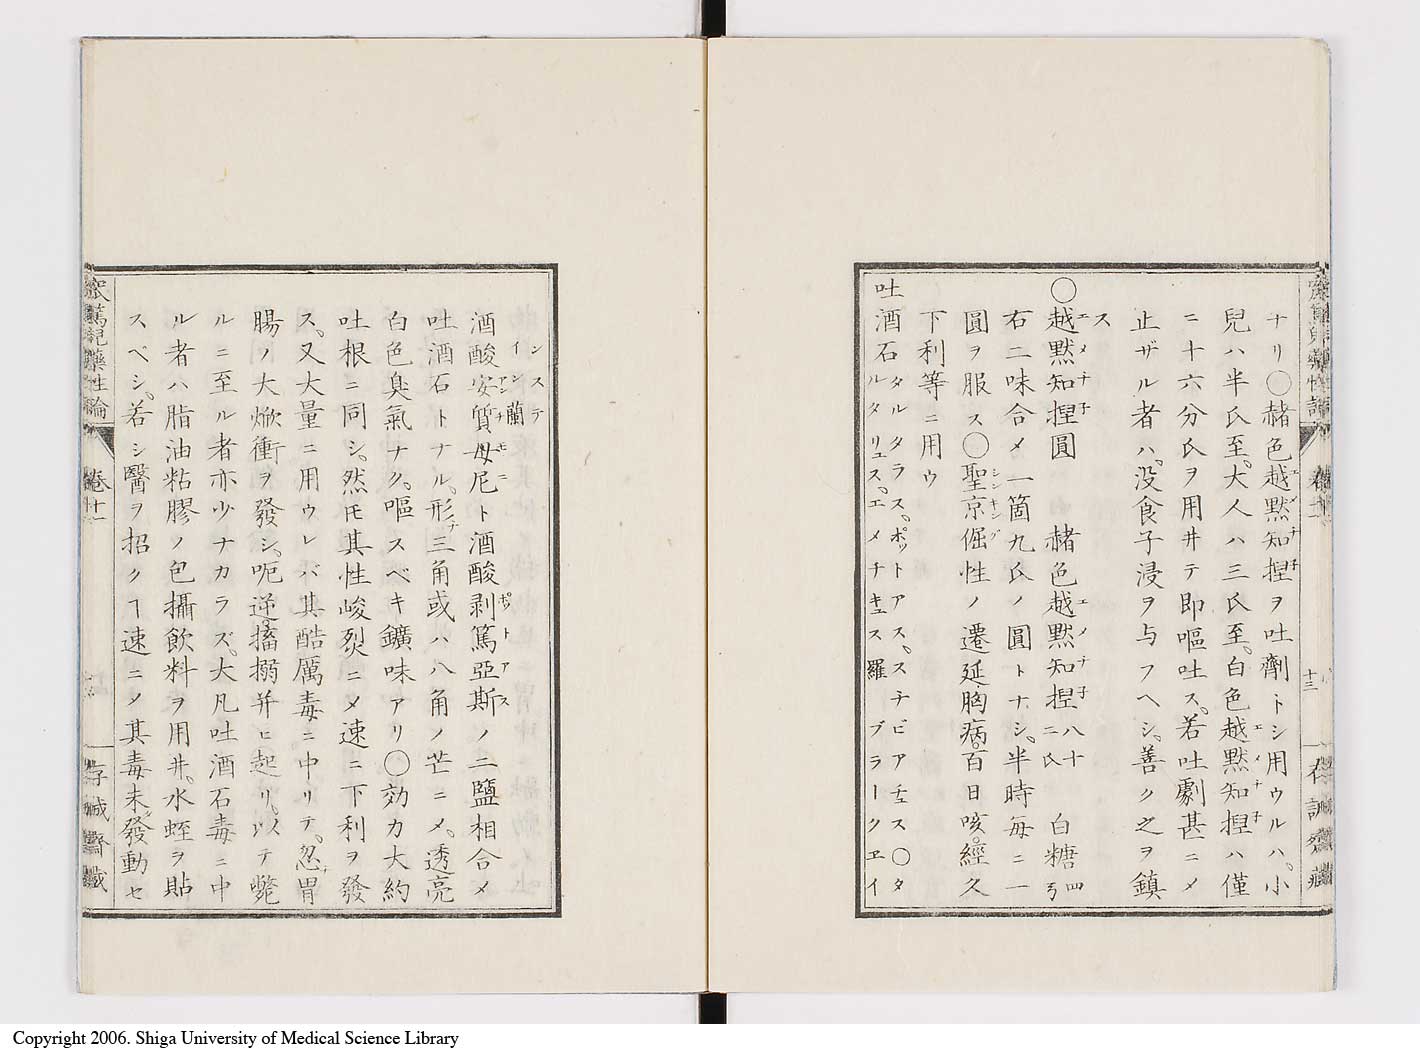 ナリ〇赭色越黙知捏ヲ吐劑トシ用ウルハ、小
兒ハ半氏至、大人ハ三氏至、白色越黙知捏ハ僅
ニ十六分氏ヲ用井テ即嘔吐ス、若吐劇甚ニメ
止ザル者ハ、没食子浸ヲ与フヘシ、善ク之ヲ鎮
ス
〇越黙知捏圓 赭色越黙知捏八十二氏 白糖四弓
右二味合メ一箇九氏ノ圓トナシ、半時毎ニ一
圓ヲ服ス〇聖京倔性ノ遷延胸病、百日咳、經久
下利等ニ用ウ
吐酒石タルタラス、ポットアス、スチビアチュス〇タルタリュス、エメチキュス羅ブラークエイ
卷十一
十三
存誠齋藏
ンステイン蘭
酒酸安質母尼ト酒酸剥篤亞斯ノ二鹽相合メ
吐酒石トナル、形チ三角或ハ八角ノ芒ニメ、透亮
白色臭氣ナク、嘔スベキ鑛味アリ〇効力大約
吐根ニ同シ、然モ其性峻烈ニメ速ニ下利ヲ發
ス、又大量ニ用ウレバ其酷厲毒ニ中リテ、忽チ胃
腸ノ大焮衝ヲ發シ、呃逆、搐搦并ヒ起リ、以テ斃
ルニ至ル者亦少ナカラズ、大凡吐酒石毒ニ中
ル者ハ脂油粘膠ノ包攝飲料ヲ用井、水蛭ヲ貼
スベシ、若シ醫ヲ招クヿ速ニメ其毒未ダ發動セ
藥性論
卷十一
存誠齋藏
Copyright 2006. Shiga University of Medical Science Library